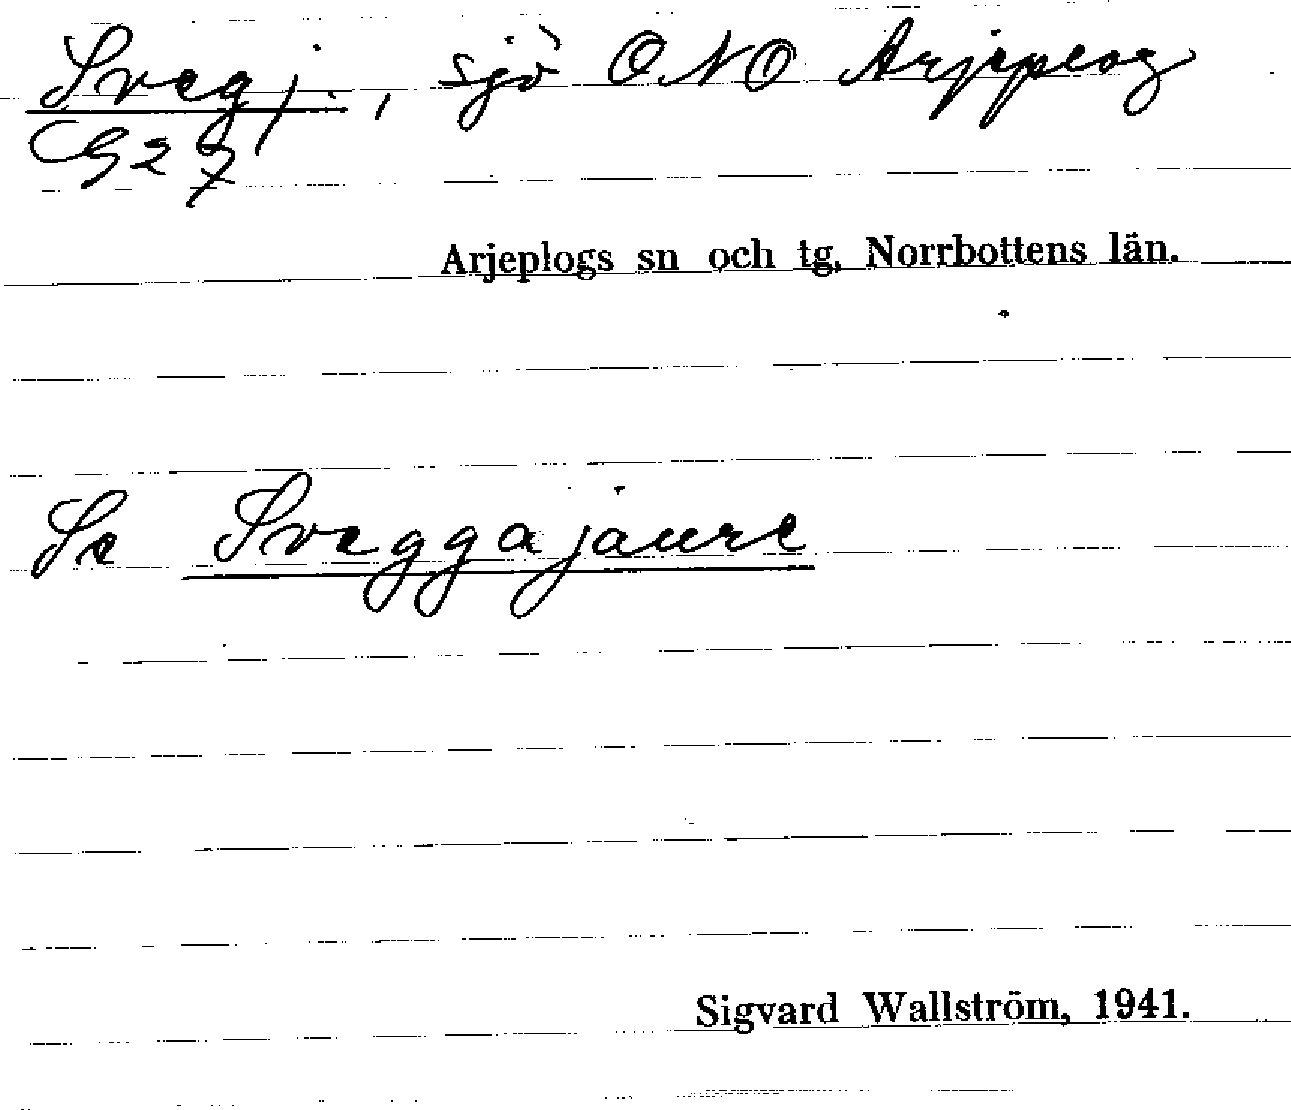 Svegj., sjö ONO Arjeplog
G27
Arjeplogs sn och tg. Norrbottens län.
Se Sveggajaure
Sigvard Wallström, 1941.